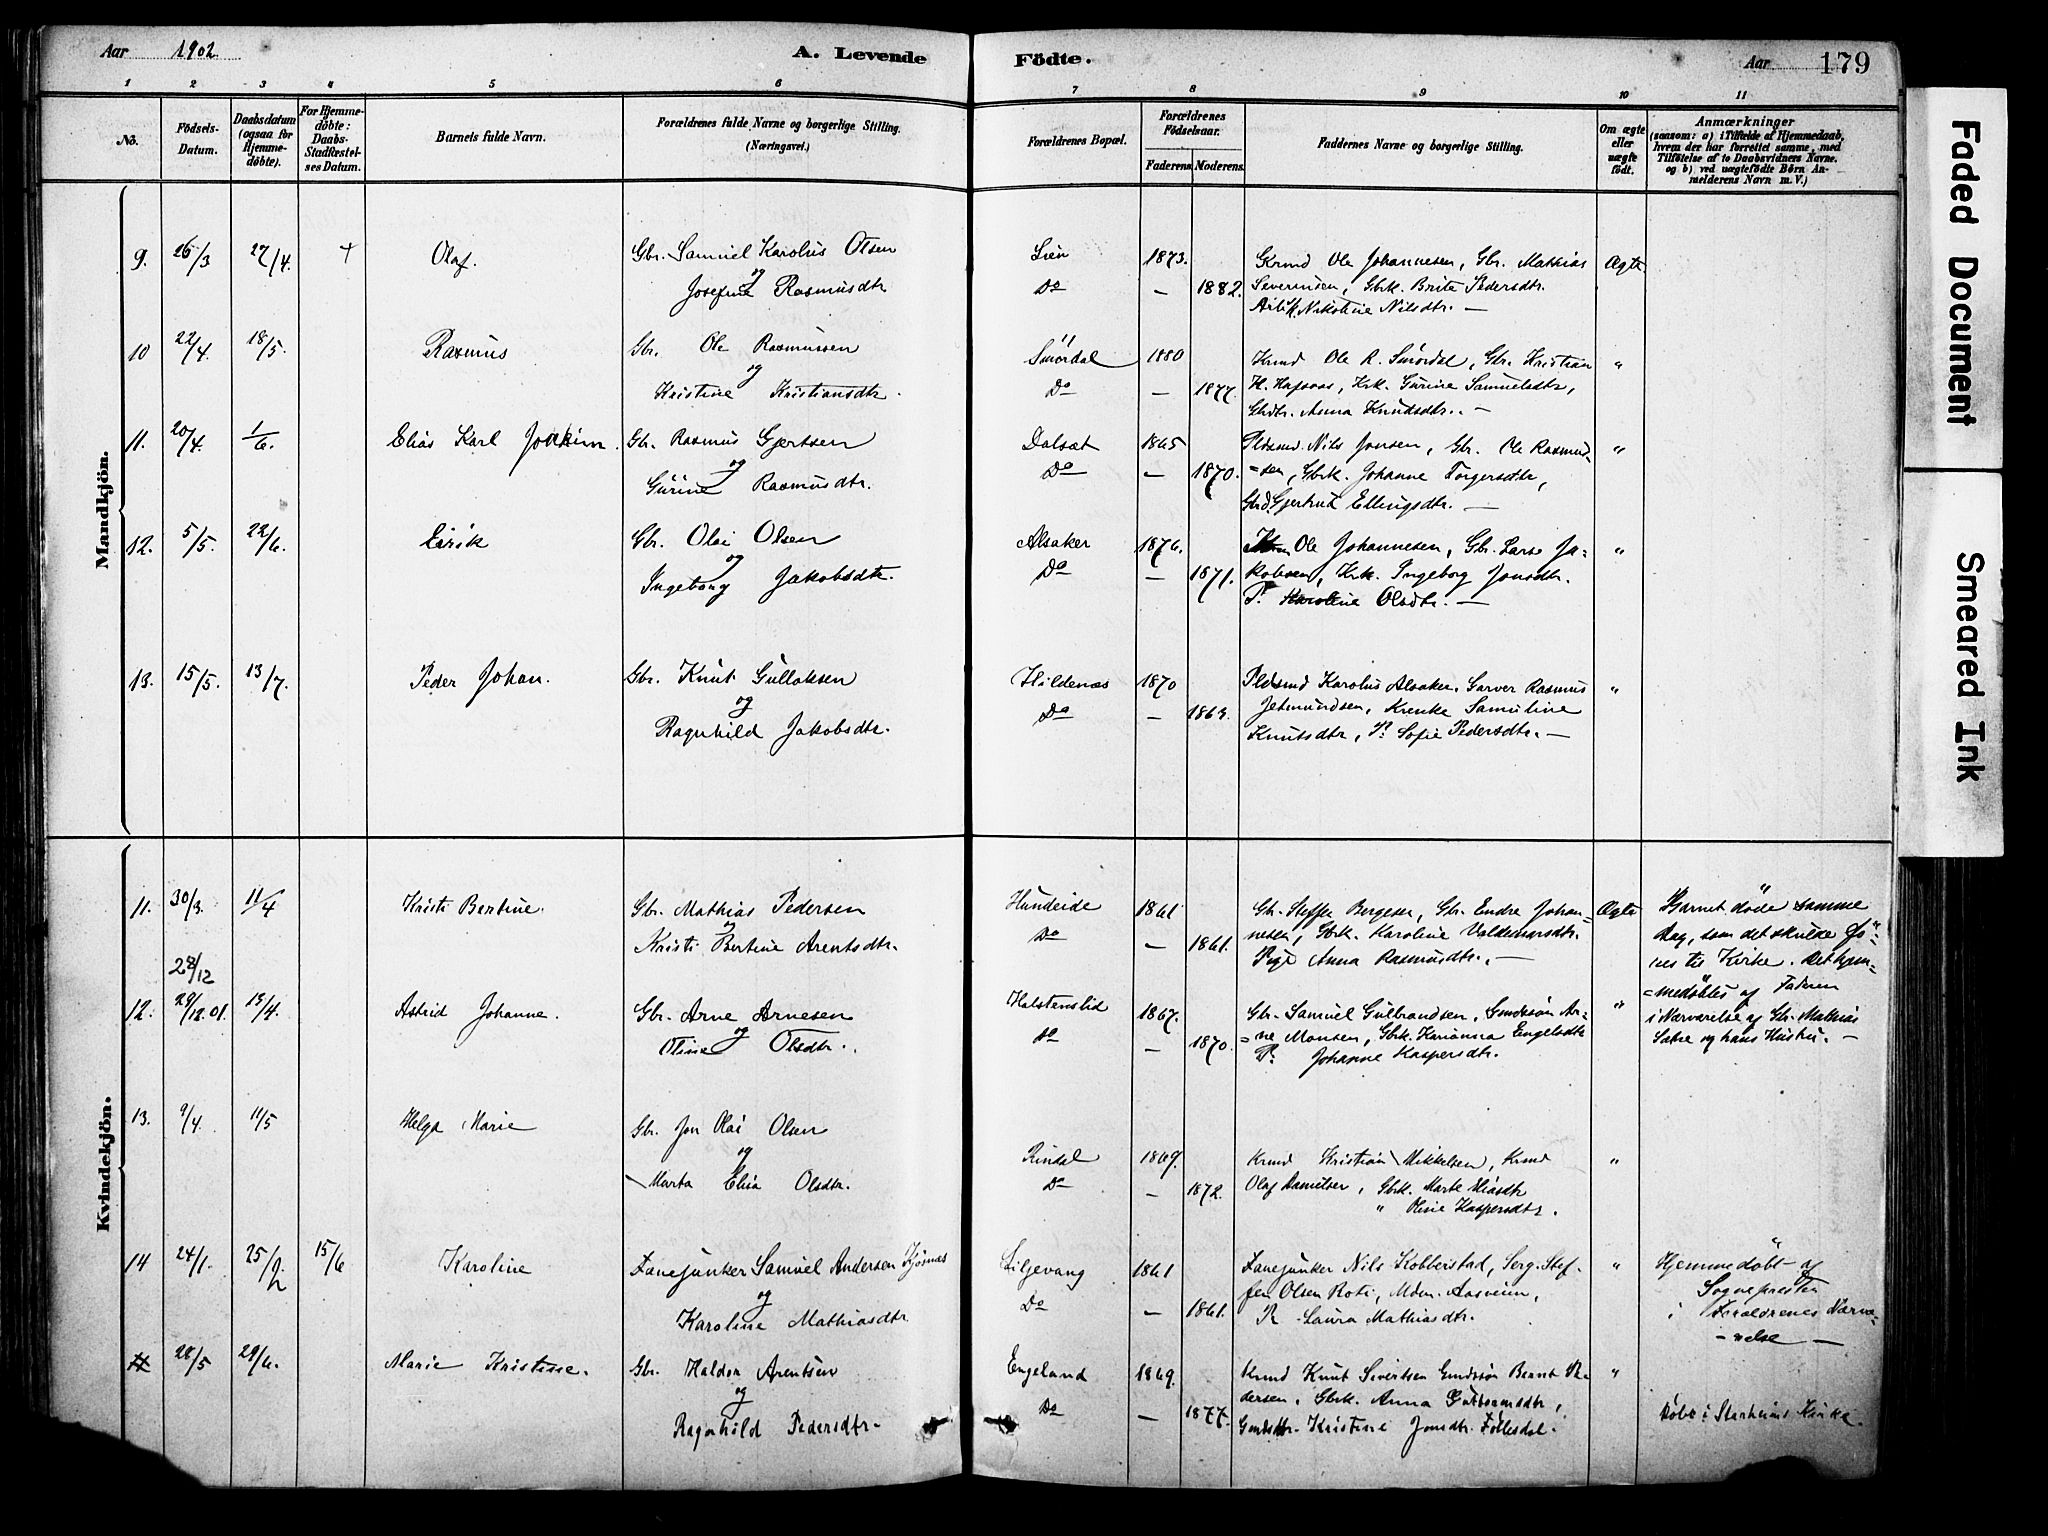 Aar 1902.
A. Levende
Födte.
Aar 179
1 2 3 4 5 6
7 8 9 10 11
No.
Födsels-
Datum.
Daabsdatum
(ogsaa for
Hjemme-
döbte).
For Hjemme-
döbte:
Daabs-
Stadfæstel-
ses Datum.
Barnets fulde Navn.
Forældrenes fulde Navne og borgerlige Stilling.
(Næringsvei.)
Forældrenes Bopæl.
Forældrenes
Födselsaar.
Faderens. Moderens.
Faddernes Navne og borgerlige Stilling.
Om ægte
eller
uægte
födt.
Anmærkninger
(saasom: a) i Tilfælde af Hjemmedaab,
hvem der har forrettet samme, med
Tilföielse af to Daabsvidners Navne,
og b) ved uægtefödte Börn An-
melderens Navn m. V.)
Mandkjön.
9. 26/3 27/4. + Olaf. Gbr. Samuel Karolus Olsen
og
Josefine Rasmusdtr
Lien 1873.
Do — 1882.
Ole Johannesen, Gbr. Mathias
Severinsen, Gbrk. Brite Pedersdtr.
Nikoline Nilsdtr. —
Ægte
10 22/4. 18/5. Rasmus Gbr. Ole Rasmussen
og
Kristine Kristiansdtr.
Smørdal 1880
Do — 1877.
Krmd Ole R. Smørdal, Gbr. Kristian
H. Krk. Gurine Samuelsdtr,
Gbrdtr. Anna Knudsdtr. —
"
11. 20/4. 1/6. Elias Karl Joakim. Gbr. Rasmus Gjertsen
og
Gurine Rasmusdtr.
Dalsæt 1865
Do — 1870.
Pldsmd Nils Jonsen, Gbr. Ole Rasmus-
=sen, Gbrk. Johanne Torgersdtr,
Gjertrud Ellingsdtr. —
"
12. 5/5. 22/6. Eirik Gbr. Olai Olsen
og
Ingeborg Jakobsdtr.
Alsaker 1876.
Do — 1871.
Ole Johannesen, Gbr. Lars Ja-
kobsen, Krk. Ingeborg Jonsdtr.
P. Karoline Olsdtr. —
"
13. 15/5. 13/7. Peder Johan. Gbr. Knut Gulloksen
og
Ragnhild Jakobsdtr.
Hildenæs 1870
Do — 1863.
Pldsmd Karolus Alsaker, Garver Rasmus
Jetmundsen, Kr.enke Samuline
Knutsdtr, P. Sofie Pedersdtr. —
"
Kvindekjön.
11. 30/3. 11/4 Kristi Bertine. Gbr. Mathias Pedersen
og
Kristi Bertine Arentsdtr.
Hundeide 1861
Do — 1861.
Gbr. Steffen Bergesen, Gbr. Endre Johan-
nesen, Gbrk. Karoline Valdemarsdtr.
Pige Anna Rasmusdtr. —
Ægte
Barnet døde samme
Dag, som det skulde fø-
res til Kirke. Det hjem-
=medøbtes af Faderen
i Nærværelse af Gbr. Mathias
Sætre og hans Hustru. —
28/12
12. 29/12.01. 13/4. Astrid Johanne. Gbr. Arne Arnesen
og
Oline Olsdtr.
Holstenslid 1867.
Do — 1870.
Gbr. Samuel Gulbrandsen, Gmdssøn Ar-
=ne Monsen, Gbrk. Karianna Engelsdtr
P. Johanne Kaspersdtr.
"
13. 9/4. 11/5 Helga Marie Gbr. Jon Olai Olsen
og
Marta Elisa Olsdtr.
Rindal 1869.
Do — 1872.
Krmd Kristian Mikkelsen, Krmd
Olaf Danielsen, Gbrk. Marte
" Oline Kaspersdtr.
"
14 24/1. 25/2 15/6 Karoline Fanejunker Samuel Andersen Hjønnæs
og
Karoline Mathiasdtr
Liljevang 1861
Do — 1861.
Fanejunker Nils Kobberstad, Serg. Stef-
fen Olsen Roti, Mdm. Aasveien,
P. Laura Mathiasdtr.
"
Hjemmedøbt af
Sognepresten
i Forældrenes Nærvæ-
-relse —
28/5 29/6. Marie Kristine. Gbr. Haldor Arentsen
og
Ragnhild Pedersdtr.
Engeland 1869.
Do — 1877.
Krmd Knut Sivertsen Gmdssøn Bernt Pe-
dersen, Gbrk. Anna Guttormsdtr,
Gmdsdtr. Kristine Jonsdtr. Follesdal.
"
Døbt i Starheims Kirke.
Faded Document
Smeared Ink